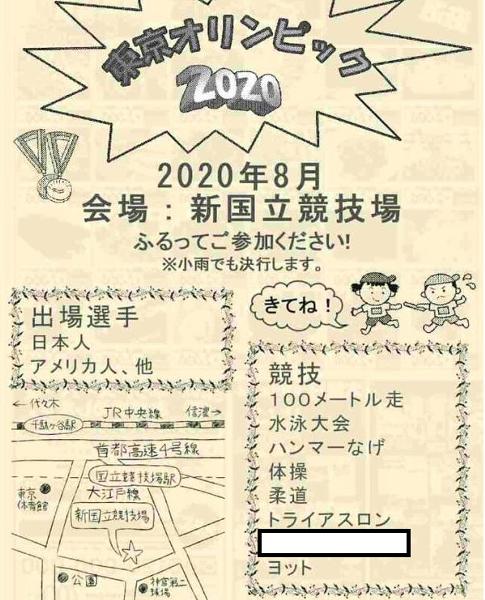 東京オリンピック
2020
2020年8月
会場：新国立競技場
ふるってご参加ください!
※小雨でも決行します。
きてね！
出場選手
日本人
アメリカ人、他
競技
100メートル走
水泳大会
ハンマーなげ
体操
柔道
トライアスロン
ヨット
←代々木
JR中央線
信濃→
千駄ヶ谷駅
首都高速4号線
国立競技場駅
大江戸線
東京
体育館
新国立競技場
公園
神宮第二
球場